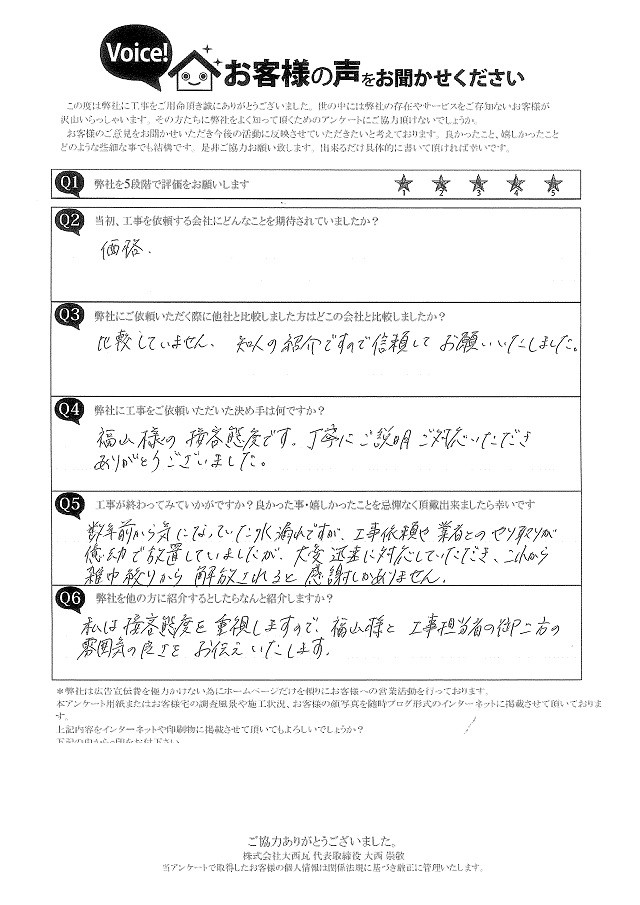 Voice!
お客様の声をお聞かせください
この度は弊社に工事をご用命頂き誠にありがとうございました。世の中には弊社の存在やサービスをご存知ないお客様が
沢山いらっしゃいます。その方たちに弊社をよく知って頂くためのアンケートにご協力頂けないでしょうか。
お客様のご意見をお聞かせいただき今後の活動に反映させていただきたいと考えております。良かったこと、嬉しかったこと
どのような些細な事でも結構です。是非ご協力お願い致します。出来るだけ具体的に書いて頂ければ幸いです。
Q1 弊社を5段階で評価をお願いします 1 2 3 4 5
Q2 当初、工事を依頼する会社にどんなことを期待されていましたか？
価格.
Q3 弊社にご依頼いただく際に他社と比較しました方はどこの会社と比較しましたか？
比較していません、知人の紹介ですので信頼してお願いいたしました。
Q4 弊社に工事をご依頼いただいた決め手は何ですか？
福山様の接客態度です。丁寧にご説明ご対応いただき
ありがとうございました。
Q5 工事が終わってみていかがですか？良かった事・嬉しかったことを忌憚なく頂戴出来ましたら幸いです
数年前から気になっていた水漏れですが、工事依頼や業者とのやり取りが
億劫で放置していましたが、大変迅速に対応していただき、これから
雑巾絞りから解放されると感謝しかありません.
Q6 弊社を他の方に紹介するとしたらなんと紹介しますか？
私は接客態度を重視しますので、福山様と工事担当者の御二方の
雰囲気の良さをお伝えいたします.
＊弊社は広告宣伝費を極力かけない為にホームページだけを頼りにお客様への営業活動を行っております。
本アンケート用紙またはお客様宅の調査風景や施工状況、お客様の顔写真を随時ブログ形式のインターネットに掲載させて頂いておりま
す。
上記内容をインターネットや印刷物に掲載させて頂いてもよろしいでしょうか？
ご協力ありがとうございました。
株式会社大西瓦 代表取締役 大西 崇敬
当アンケートで取得したお客様の個人情報は関係法規に基づき厳正に管理いたします。